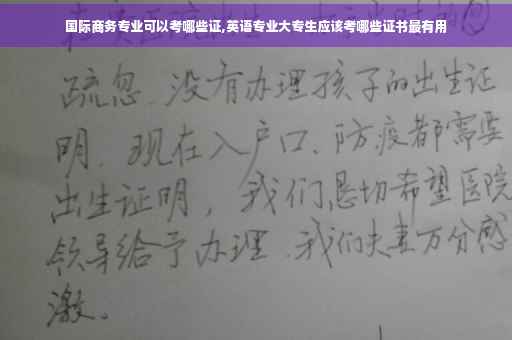 国际商务专业可以考哪些证,英语专业大专生应该考哪些证书最有用
疏忽、没有办理孩子的出生证
明、现在入户口、防疫都需要
出生证明，我们恳切希望医院
领导给予办理、我们夫妻万分感
激。